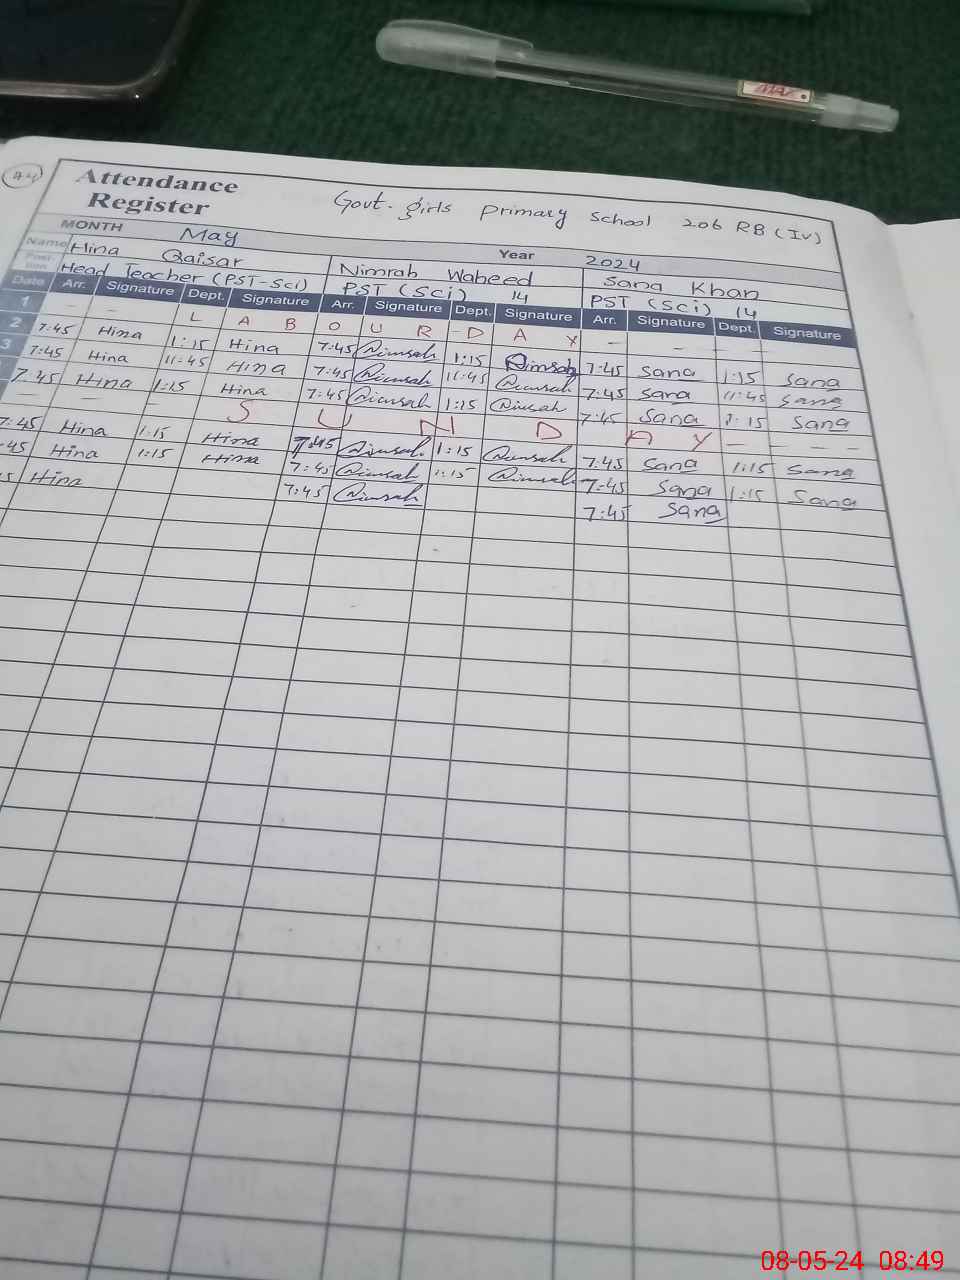 Attendance
Register
Govt. girls Primary School 206 RB (IV)
MONTH May Year 2024
Name Hina Qaisar Nimrah Waheed Sana Khan
Posi-tion Head Teacher (PST-Sci) PST (Sci) 14 PST (Sci) 14
Date Arr. Signature Dept. Signature Arr. Signature Dept. Signature Arr. Signature Dept. Signature
1 - - L A B O U R D A Y - - - -
2 7:45 Hina 1:15 Hina 7:45 Nimrah 1:15 Nimrah 7:45 Sana 1:15 Sana
3 7:45 Hina 11:45 Hina 7:45 Nimrah 11:45 Nimrah 7:45 Sana 11:45 Sana
7:45 Hina 1:15 Hina 7:45 Nimrah 1:15 Nimrah 7:45 Sana 1:15 Sana
- - - S U N D A Y - - -
7:45 Hina 1:15 Hina 7:45 Nimrah 1:15 Nimrah 7:45 Sana 1:15 Sana
:45 Hina 1:15 Hina 7:45 Nimrah 1:15 Nimrah 7:45 Sana 1:15 Sana
5 Hina 7:45 Nimrah 7:45 Sana
08-05-24 08:49